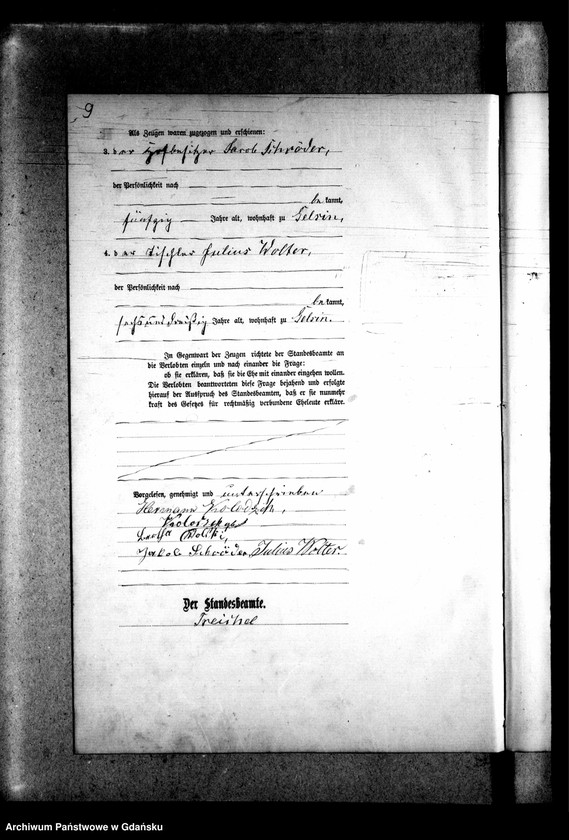 9
Als Zeugen waren zugezogen und erschienen:
3. der Hofbesitzer Jacob Schröder,
der Persönlichkeit nach
be kannt,
fünfzig Jahre alt, wohnhaft zu
4. der Tischler Julius Wolter,
der Persönlichkeit nach
be kannt,
sechsunddreißig Jahre alt, wohnhaft zu
In Gegenwart der Zeugen richtete der Standesbeamte an
die Verlobten einzeln und nach einander die Frage:
ob sie erklären, daß sie die Ehe mit einander eingehen wollen.
Die Verlobten beantworteten diese Frage bejahend und erfolgte
hierauf der Ausspruch des Standesbeamten, daß er sie nunmehr
kraft des Gesetzes für rechtmäßig verbundene Eheleute erkläre.
Vorgelesen, genehmigt und unterschrieben
Hermann
Jakob Schröder, Julius Wolter.
Der Standesbeamte.
Treichel
Archiwum Państwowe w Gdańsku